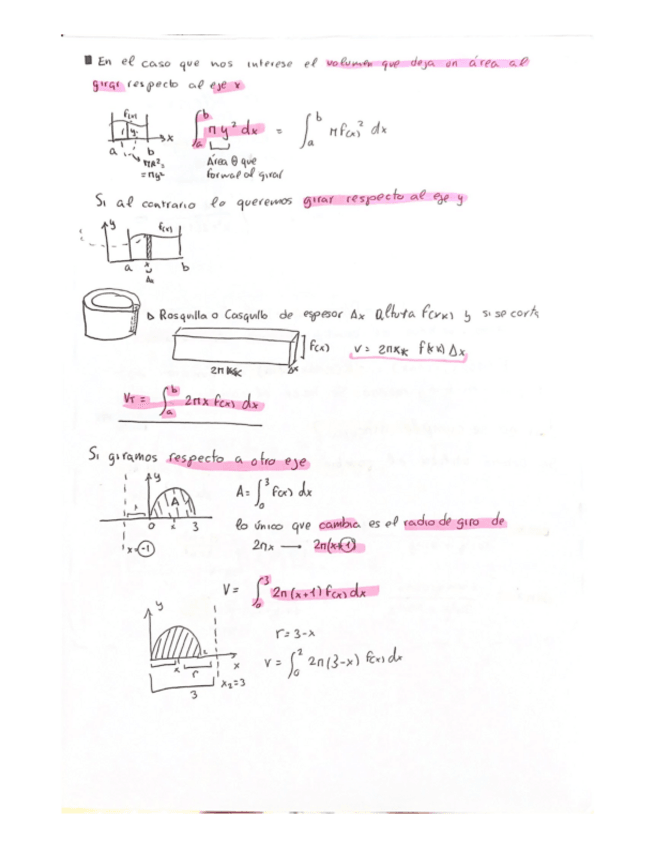 ■ En el caso que nos interese el volumen que deja un área al
girar respecto al eje x
f(x)
r y
a b x
πR²=
=πy²
∫ₐᵇ πy² dx = ∫ₐᵇ πf(x)² dx
Área θ que
formal al girar
Si al contrario lo queremos girar respecto al eje y
y f(x)
a x b
Δx
Rosquilla o Casquillo de espesor Δx Altura f(xk) y si se corta
f(x) V= 2πxk f(xk) Δx
2πxk Δx
V_T = ∫ₐᵇ 2πx f(x) dx
Si giramos respecto a otro eje
y A
A= ∫₀³ f(x) dx
0 x 3
lo único que cambia es el radio de giro de
x=-1 2πx → 2π(x+1)
V= ∫₀³ 2π(x+1) f(x) dx
y
r=3-x
x r x
V= ∫₀² 2π(3-x) f(x) dx
x₂=3
3